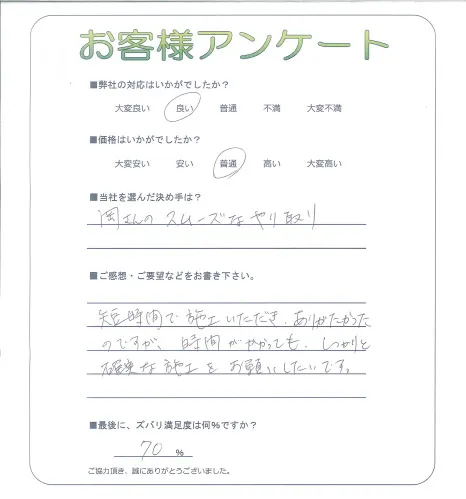 お客様アンケート
■弊社の対応はいかがでしたか？
大変良い 良い 普通 不満 大変不満
■価格はいかがでしたか？
大変安い 安い 普通 高い 大変高い
■当社を選んだ決め手は？
岡さんの スムーズなやり取り
■ご感想・ご要望などをお書き下さい。
短時間で施工いただき、ありがたかった
のですが、時間がかかっても、しっかりと
確実な施工をお願いしたいです。
■最後に、ズバリ満足度は何％ですか？
70 %
ご協力頂き、誠にありがとうございました。